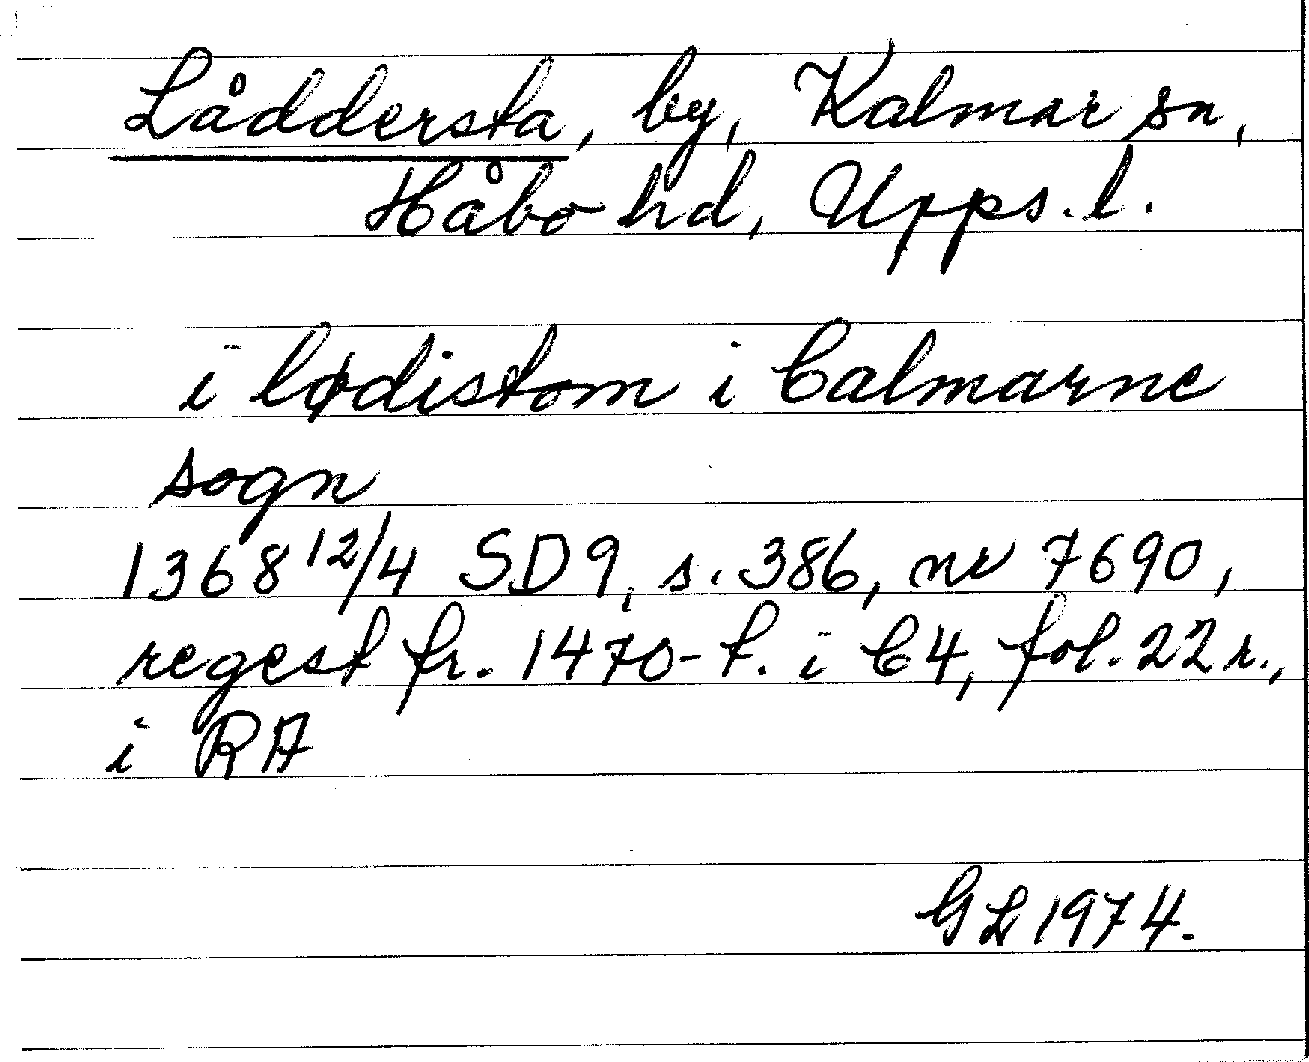 Låddersta, by, Kalmar sn,
Håbo hd, Upps. l.
i lødistom i Calmarne
sogn
1368 12/4 SD 9, s. 386, nr 7690,
regest fr. 1470-t. i C4, fol. 22 r.,
i RA
GL 1974.